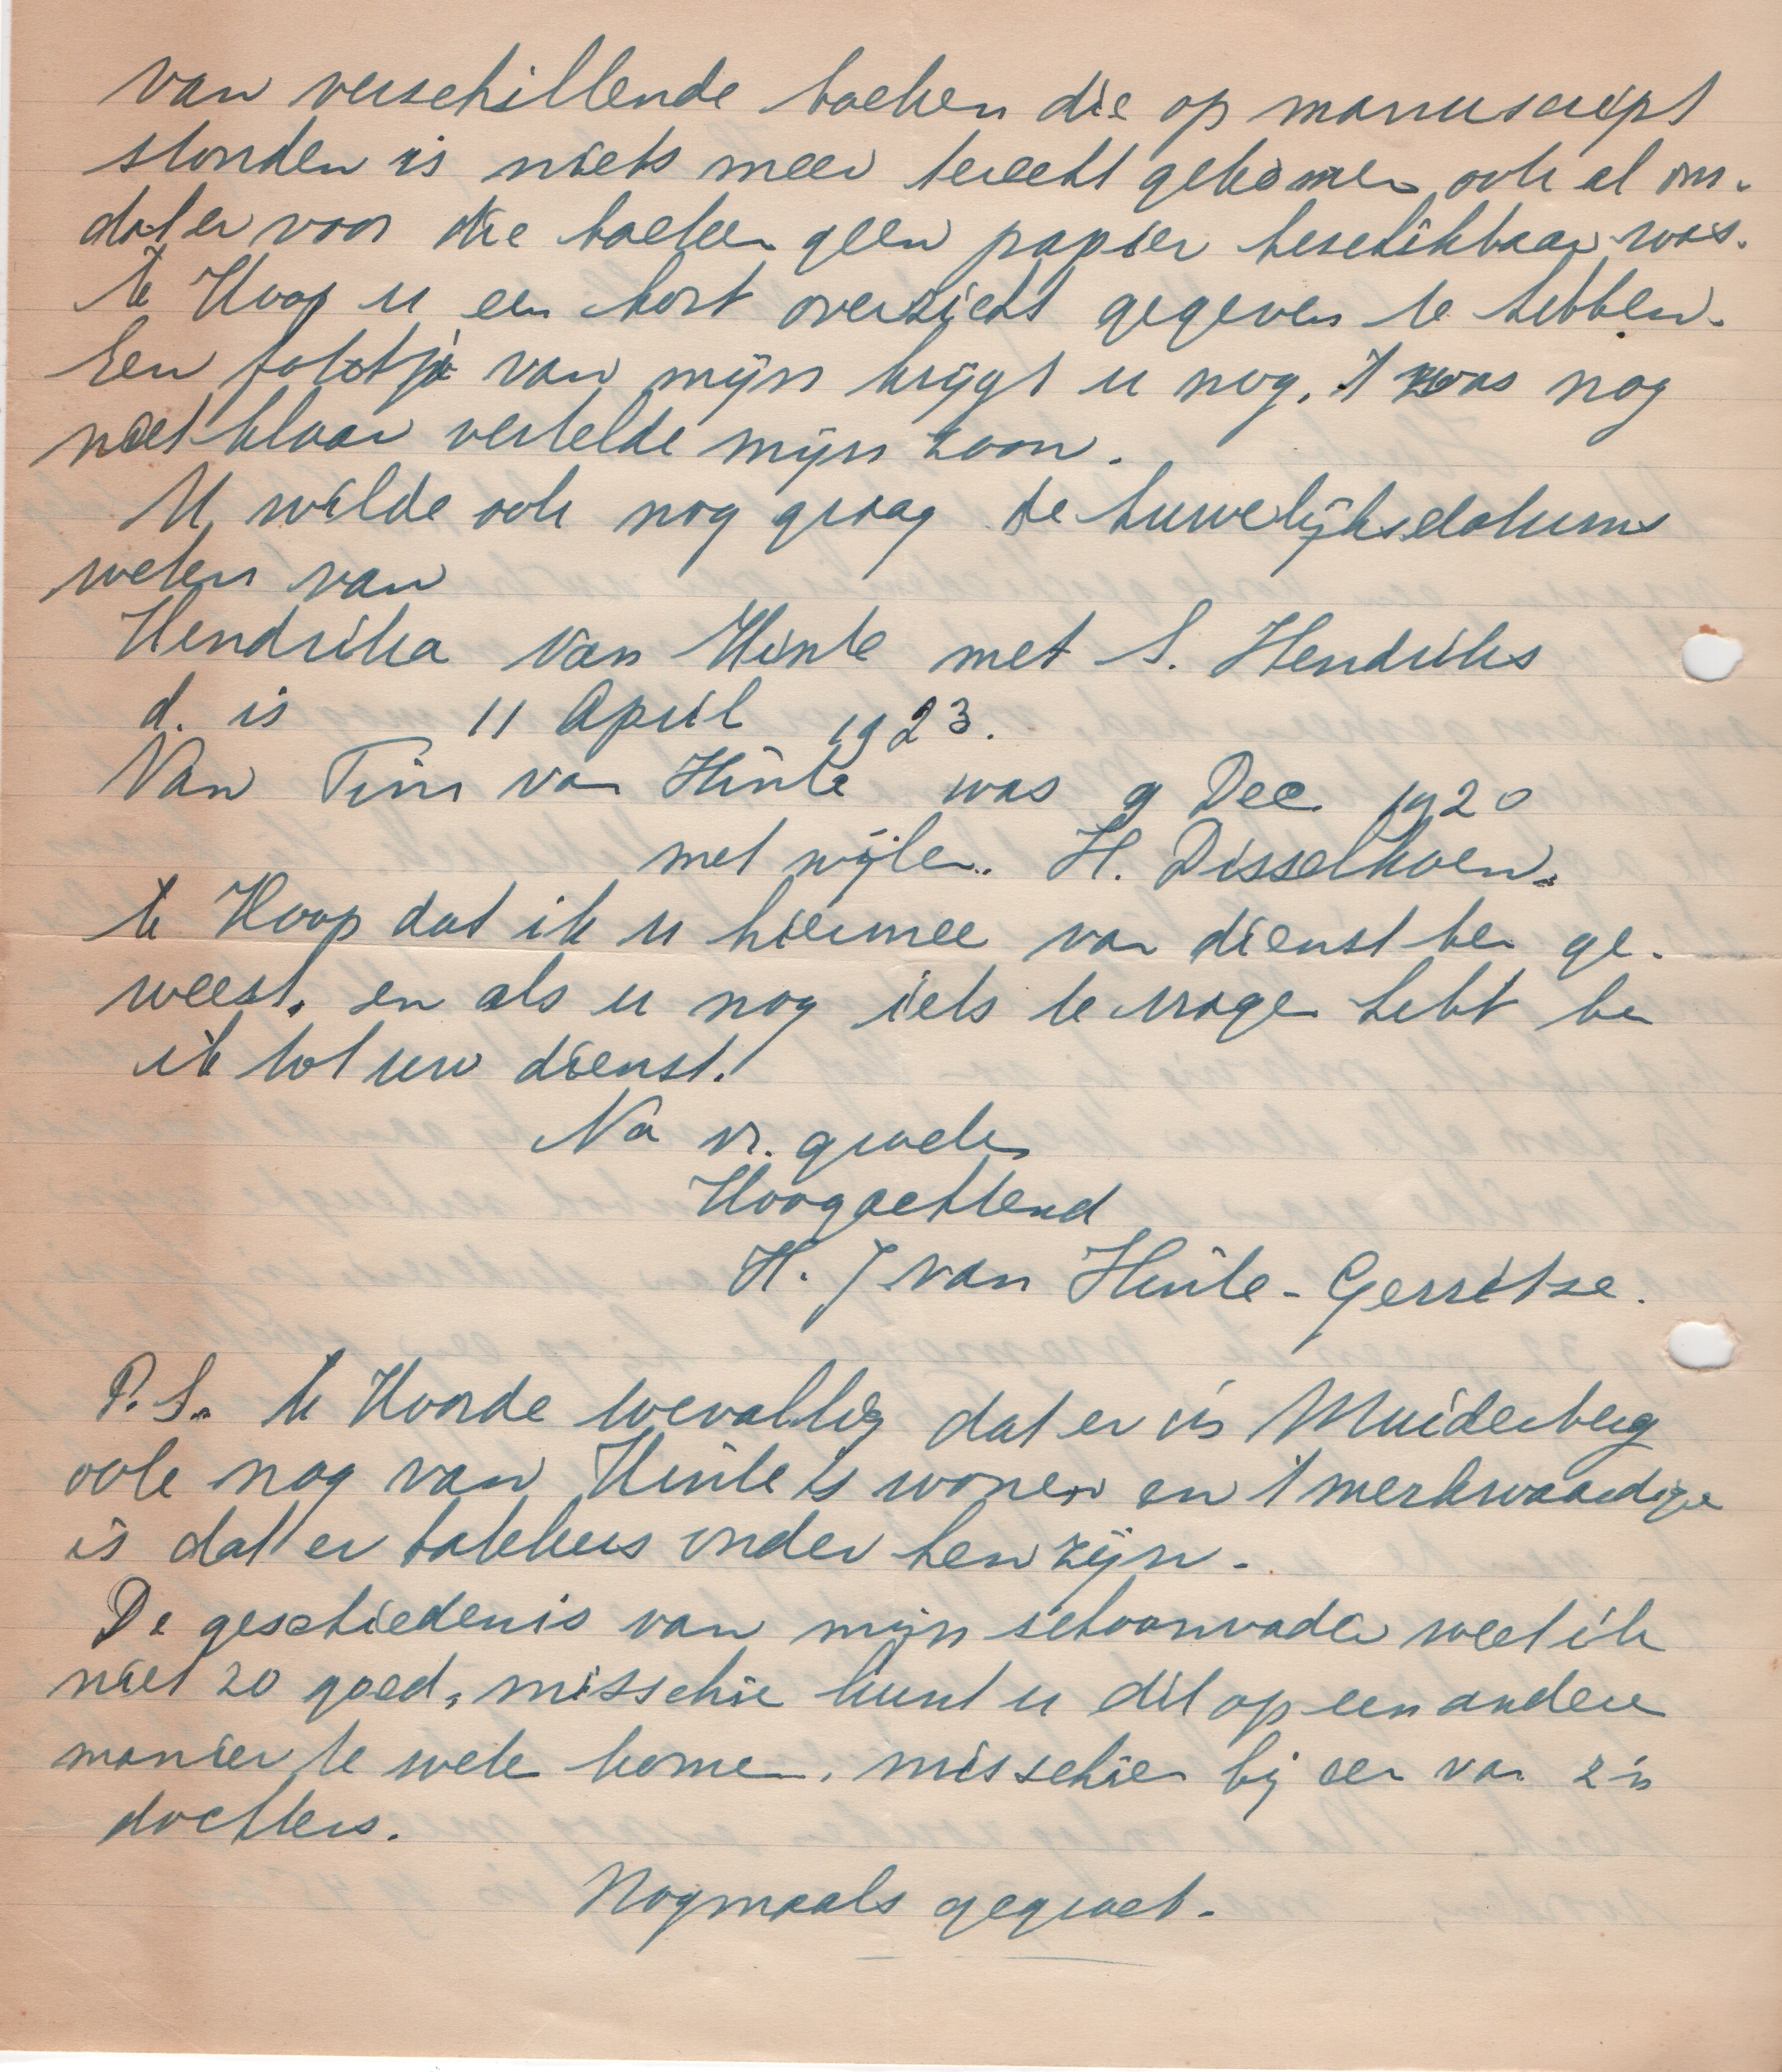 van verschillende boeken die op manuscript
stonden is niets meer terecht gekomen, ook al om-
dat er voor die boeken geen papier beschikbaar was.
Ik Hoop u een kort overzicht gegeven te hebben.
Een fotootje van mijn krijgt u nog, 't was nog
niet klaar vertelde mijn zoon.
U wilde ook nog graag de huwelijksdatums
weten van
Hendrika van Hinte met S. Hendriks
d. is 11 April 1923.
Van Tini van Hinte was 9 Dec. 1920
met wijlen. H. Disselkoen.
Ik Hoop dat ik u hiermee van dienst ben ge-
weest, en als u nog iets te vragen hebt ben
ik tot uw dienst.
Na vr. groeten
Hoogachtend
H. J van Hinte - Gerritse.
P.S. Ik Hoorde toevallig dat er in Muiderberg
ook nog van Hinte's wonen en 't merkwaardige
is dat er bakkers onder hen zijn.
De geschiedenis van mijn schoonvader weet ik
niet zo goed, misschie kunt u dit op een andere
manier te weten komen, misschien bij een van z'n
dochters.
Nogmaals gegroet.